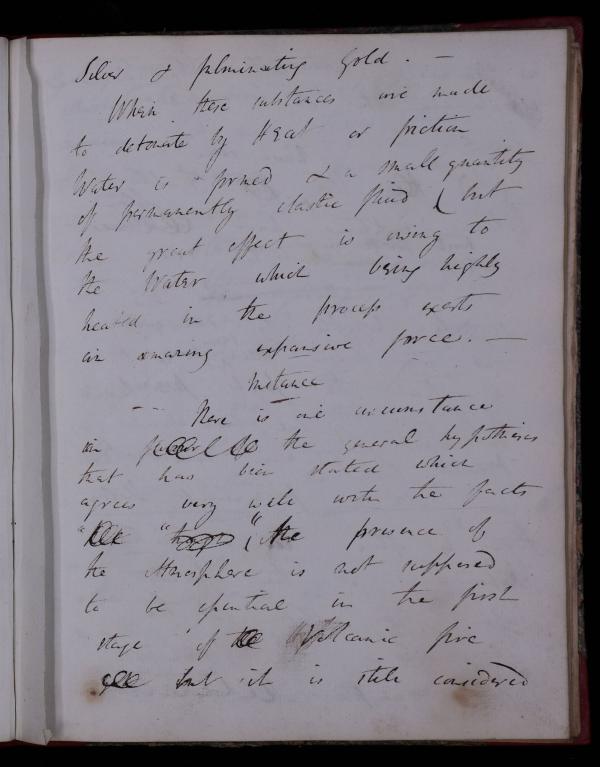 Silver & fulminating Gold. —
When these substances are made
to detonate by Heat or friction
Water is formed & a small quantity
of permanently elastic fluid ( but
the great effect is owing to
the Water which being highly
heated in the process exerts
an amazing expansive force. —
Instance
— Here is one circumstance
in the general hypothesis
that has been stated which
agrees very well with the facts
"( the presence of
the Atmosphere is not supposed
to be essential in the first
stage of Volcanic fire
but it is still considered